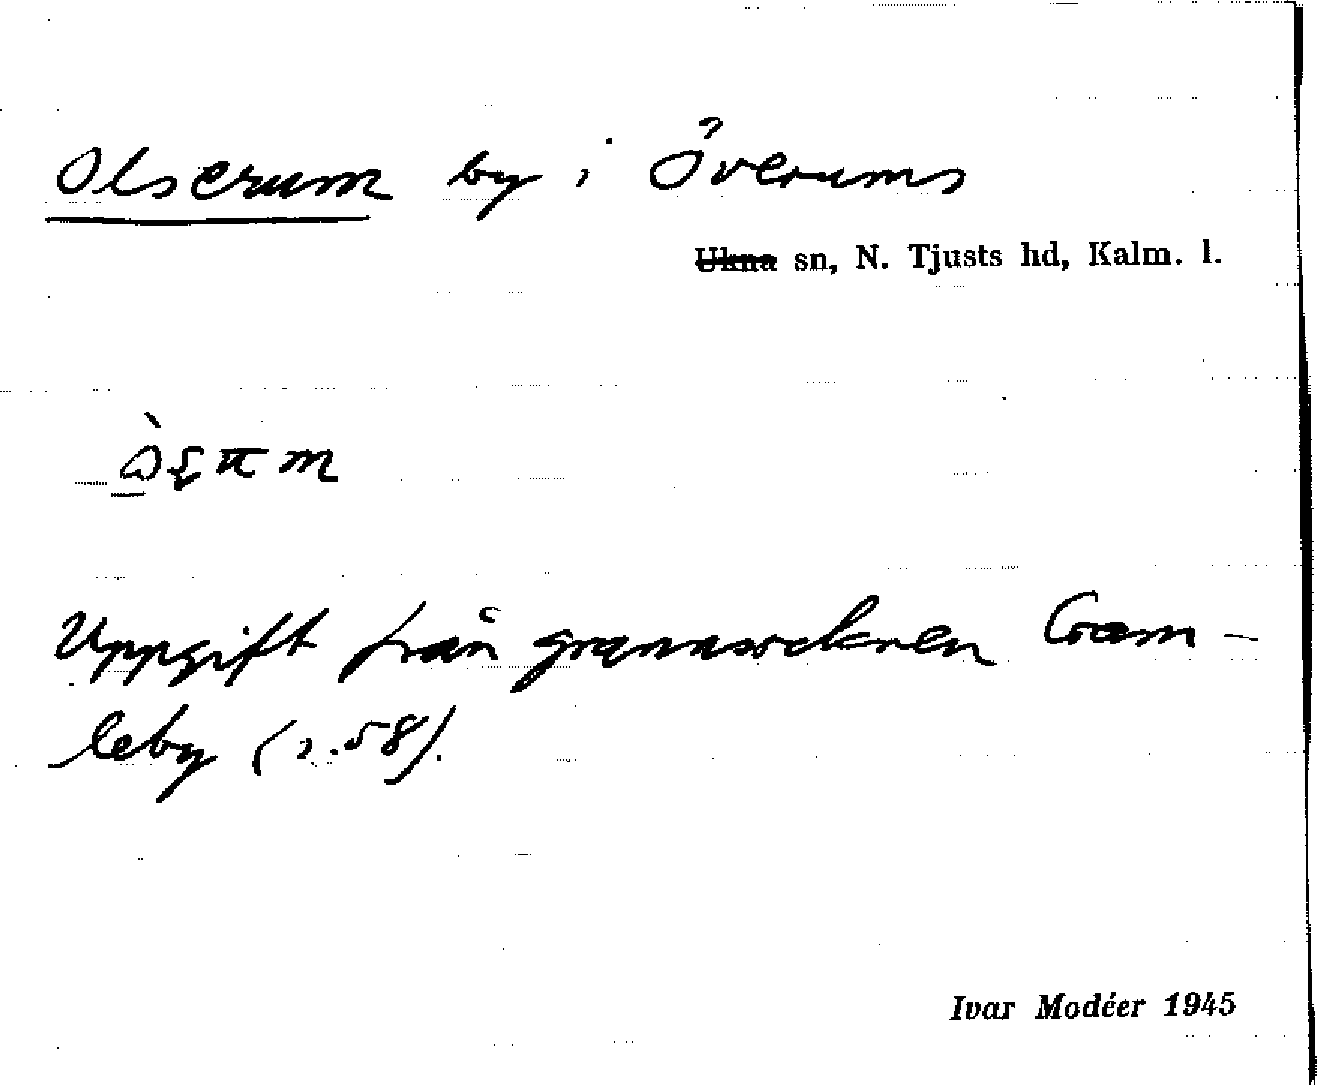 Olserum by i Överums
Ukna sn, N. Tjusts hd, Kalm. l.
Uppgift från grannsocknen Gam-
leby (s. 58).
Ivar Modéer 1945